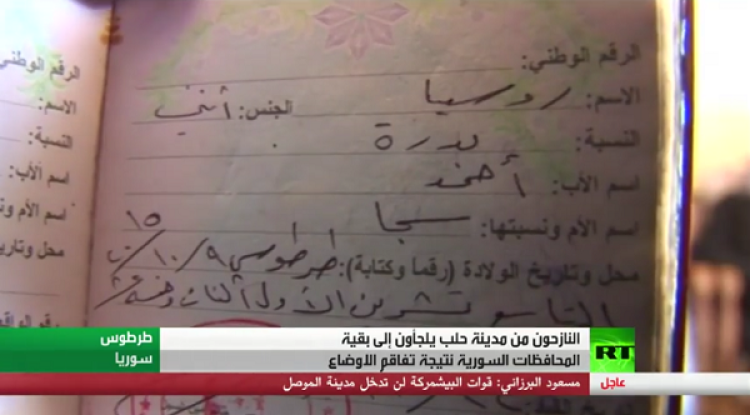 الرقم الوطني:
الاسم: روسيا الجنس: أنثى
النسبة: بدرة
اسم الأب: أحمد
اسم الأم ونسبتها: سجا
محل وتاريخ الولادة (رقماً وكتابة): طرطوس ٩/١٠/
١٥
التاسع تشرين الأول ألفان وخمسة عشر
الرقم الوطني
الاسم:
النسبة:
اسم الأب:
اسم الأم
محل وتاريخ
طرطوس
سوريا
النازحون من مدينة حلب يلجأون إلى بقية
المحافظات السورية نتيجة تفاقم الاوضاع
RT
عاجل
مسعود البرزاني: قوات البيشمركة لن تدخل مدينة الموصل